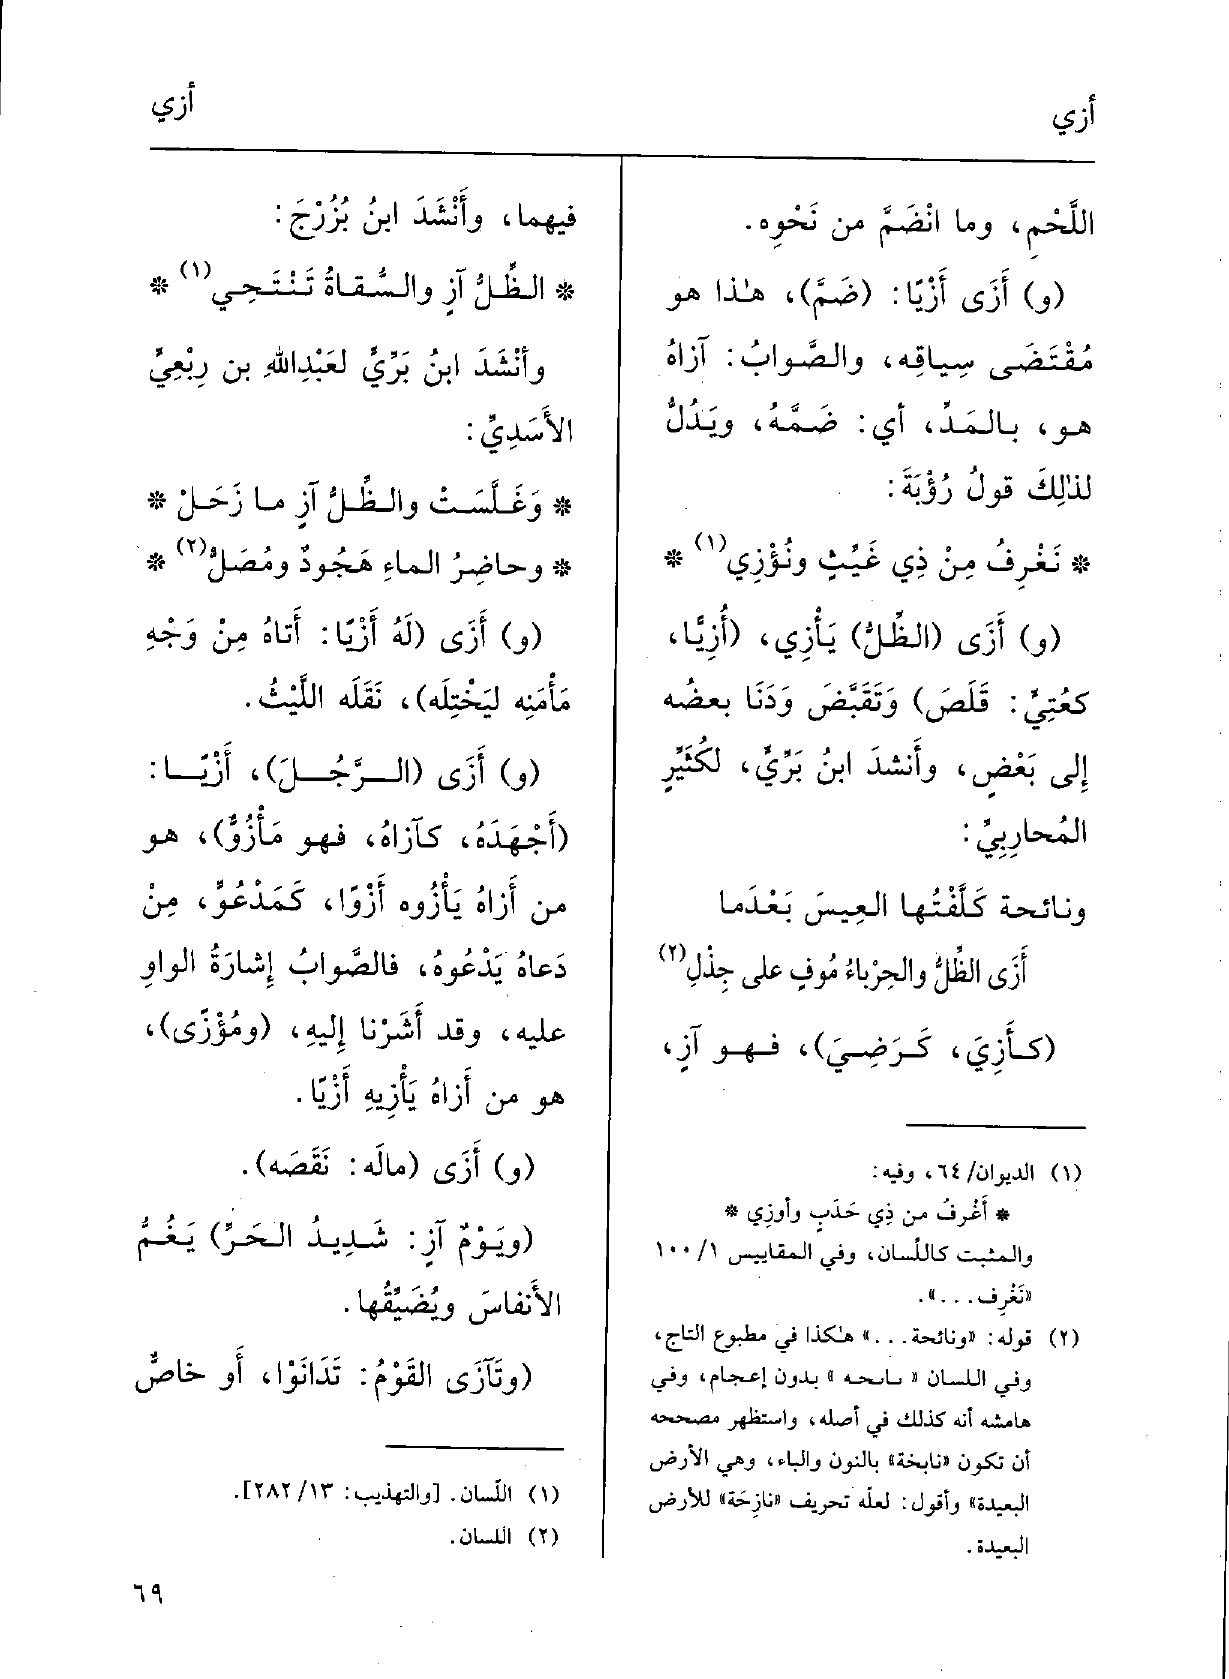 أزي
أزي
اللَّحْمِ، وما انْضَمَّ من نَحْوِه.
(و) أَزَى أَزْيًا: (ضَمَّ)، هٰذا هو
مُقْتَضَى سِياقِه، والصَّوابُ: آزاهُ
هو، بالمَدِّ، أي: ضَمَّهُ، ويَدُلُّ
لذٰلِكَ قولُ رُؤْبَةَ:
* نَغْرِفُ مِنْ ذِي غَيِّثٍ ونُؤْزِي(١) *
(و) أَزَى (الظِّلُّ) يَأْزِي، (أُزِيًّا،
كعُتِيٍّ: قَلَصَ) وَتَقَبَّضَ وَدَنَا بعضُه
إلى بَعْضٍ، وأَنشدَ ابنُ بَرِّيٍّ، لكُثَيِّرٍ
المُحارِبِيِّ:
ونائحة كَلَّفْتُها العِيسَ بَعْدَما
أَزَى الظِّلُّ والحِرْباءُ مُوفٍ على جِذْلِ(٢)
(كـأَزِيَ، كَـرَضِـيَ)، فـهـو آزٍ،
(١) الديوان/ ٦٤، وفيه:
* أَغْرِفُ من ذِي حَدَبٍ وأوزِي *
والمثبت كاللّسان، وفي المقاييس ١/ ١٠٠
«نَغْرِف...».
(٢) قوله: «ونائحة...» هٰكذا في مطبوع التاج،
وفي اللسان « ىاىحه » بدون إعجام، وفي
هامشه أنه كذلك في أصله، واستظهر مصححه
أن تكون «نابخة» بالنون والباء، وهي الأرض
البعيدة» وأقول: لعلّه تحريف «نازِحَة» للأرض
البعيدة.
فيهما، وأَنْشَدَ ابنُ بُزُرْجَ:
* الظِّلُّ آزٍ والسُّقاةُ تَنْتَحِي(١) *
وأَنْشَدَ ابنُ بَرِّيٍّ لعَبْدِاللّٰهِ بن رِبْعِيٍّ
الأَسَدِيِّ:
* وَغَلَّسَتْ والظِّلُّ آزٍ ما زَحَلْ *
* وحاضِرُ الماءِ هَجُودٌ ومُصَلٌّ(٢) *
(و) أَزَى (لَهُ أَزْيًا: أَتاهُ مِنْ وَجْهِ
مَأْمَنِه ليَخْتِلَه)، نَقَلَه اللَّيْثُ.
(و) أَزَى (الـرَّجُـلَ)، أَزْيًـا:
(أَجْهَدَهُ، كآزاهُ، فهو مَأْزُوٌّ)، هو
من أَزاهُ يَأْزُوه أَزْوًا، كَمَدْعُوٍّ، مِنْ
دَعاهُ يَدْعُوهُ، فالصَّوابُ إشارَةُ الواوِ
عليه، وقد أَشَرْنا إِليهِ، (ومُؤْزًى)،
هو من أَزاهُ يَأْزِيهِ أَزْيًا.
(و) أَزَى (مالَه: نَقَصَه).
(ويَـوْمٌ آزٍ: شَدِيدُ الحَرِّ) يَغُمُّ
الأَنفاسَ ويُضَيِّقُها.
(وتَآزَى القَوْمُ: تَدَانَوْا، أَو خاصٌّ
(١) اللّسان. [والتهذيب: ١٣/ ٢٨٢].
(٢) اللسان.
٦٩